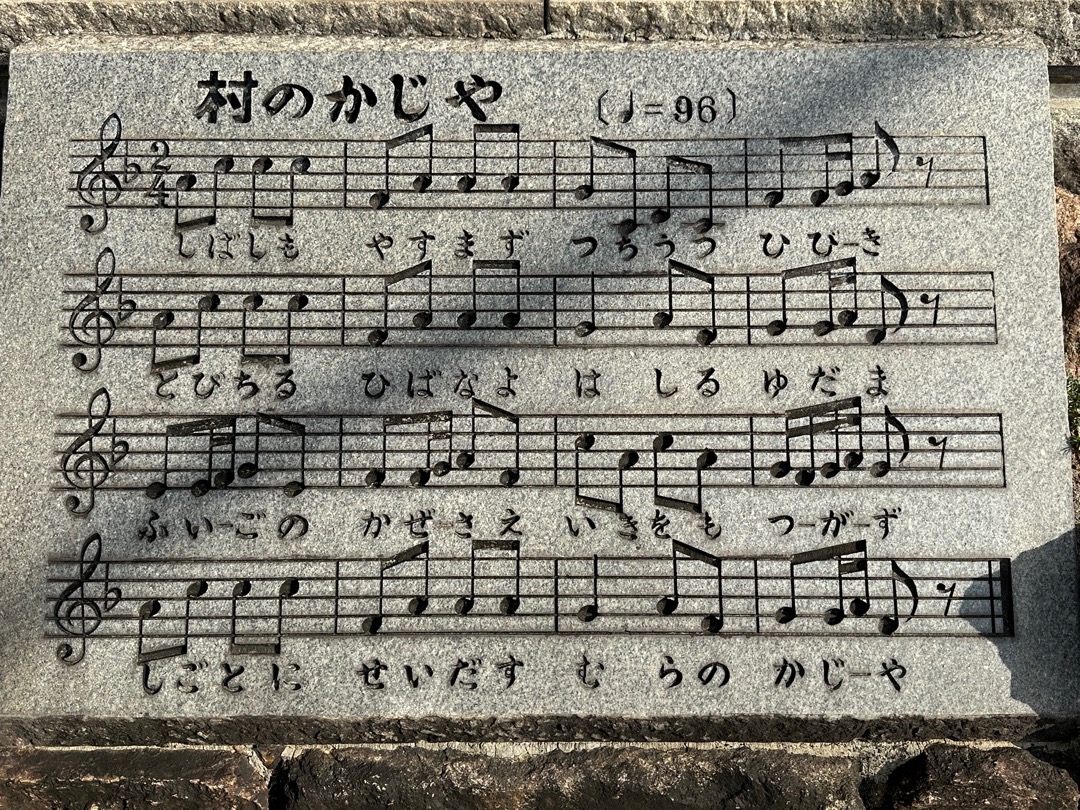 村のかじや (♩=96)
2/4
しばしも やすまず つちうつ ひびーき
とびちる ひばなよ は しる ゆだま
ふいーごの かぜーさえ いきをも つーがーず
しごとに せいだす む らの かじーや